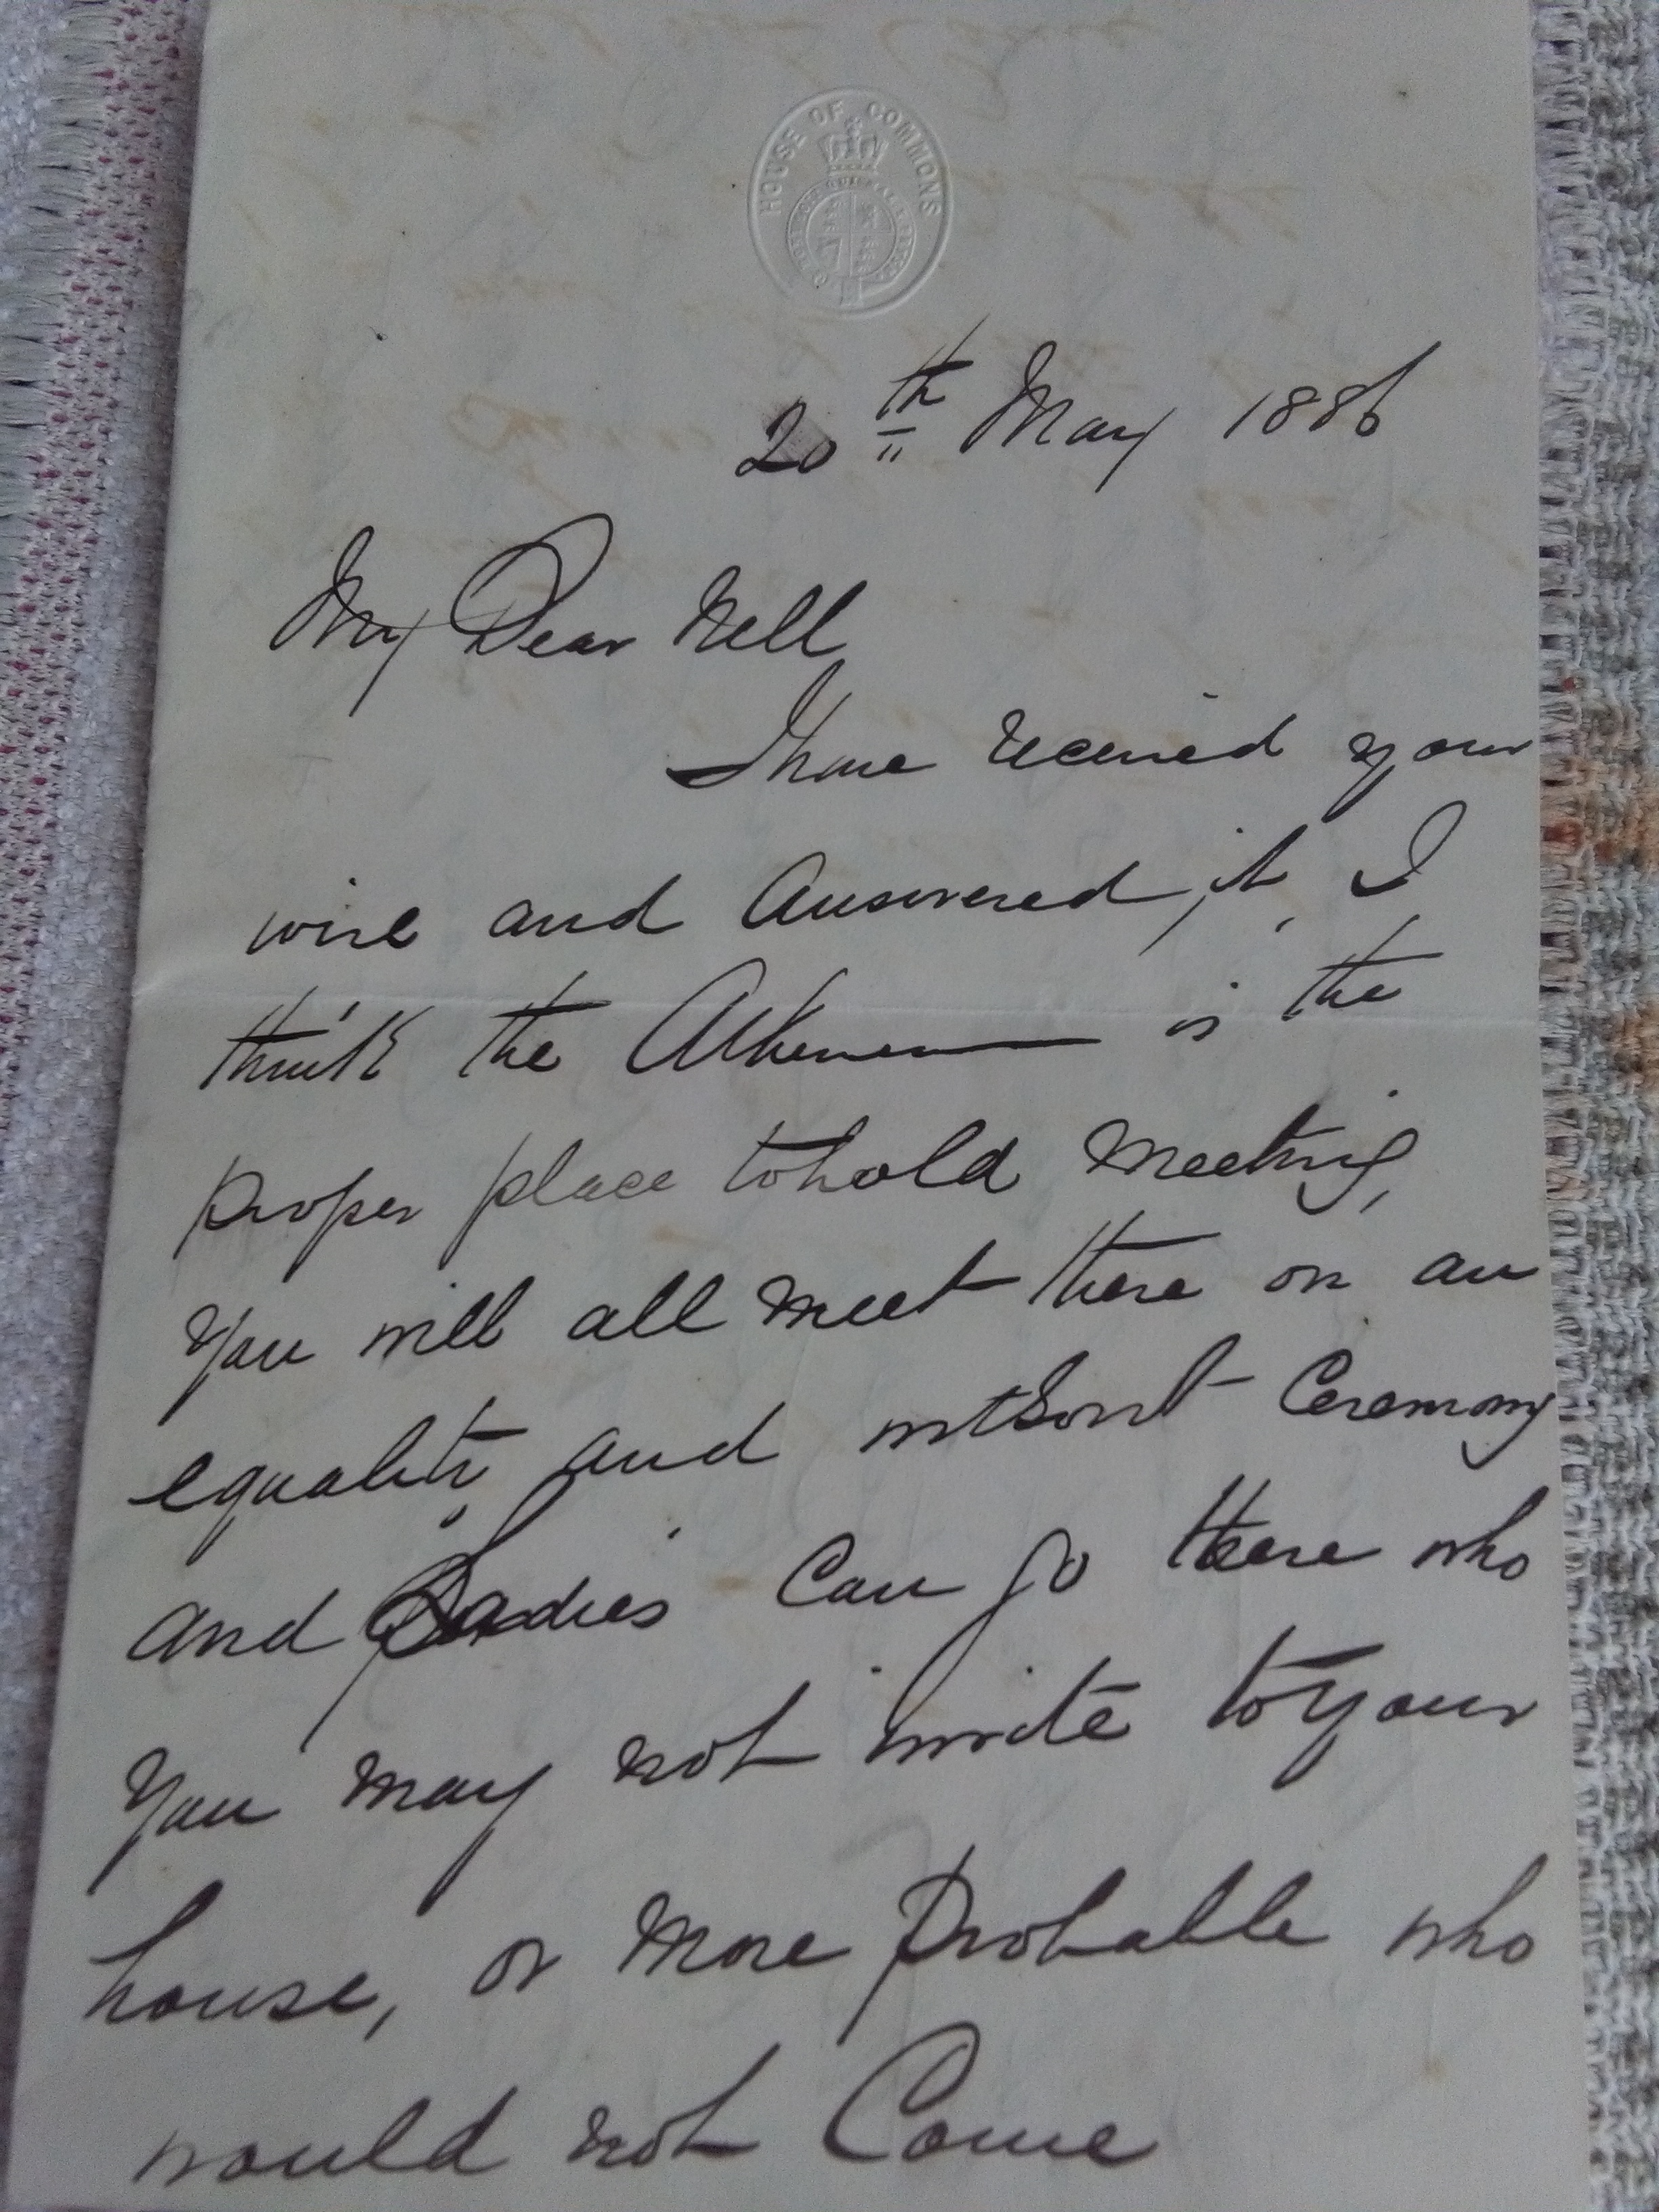 HOUSE OF COMMONS
20th May 1886
My Dear Nell
I have received your
wire and Answered it, I
think the Atheneum is the
proper place to hold Meeting,
You will all meet there on an
equality and without Ceremony
and Ladies Can go there who
You may not invite to your
house, or More Probable who
would not Come